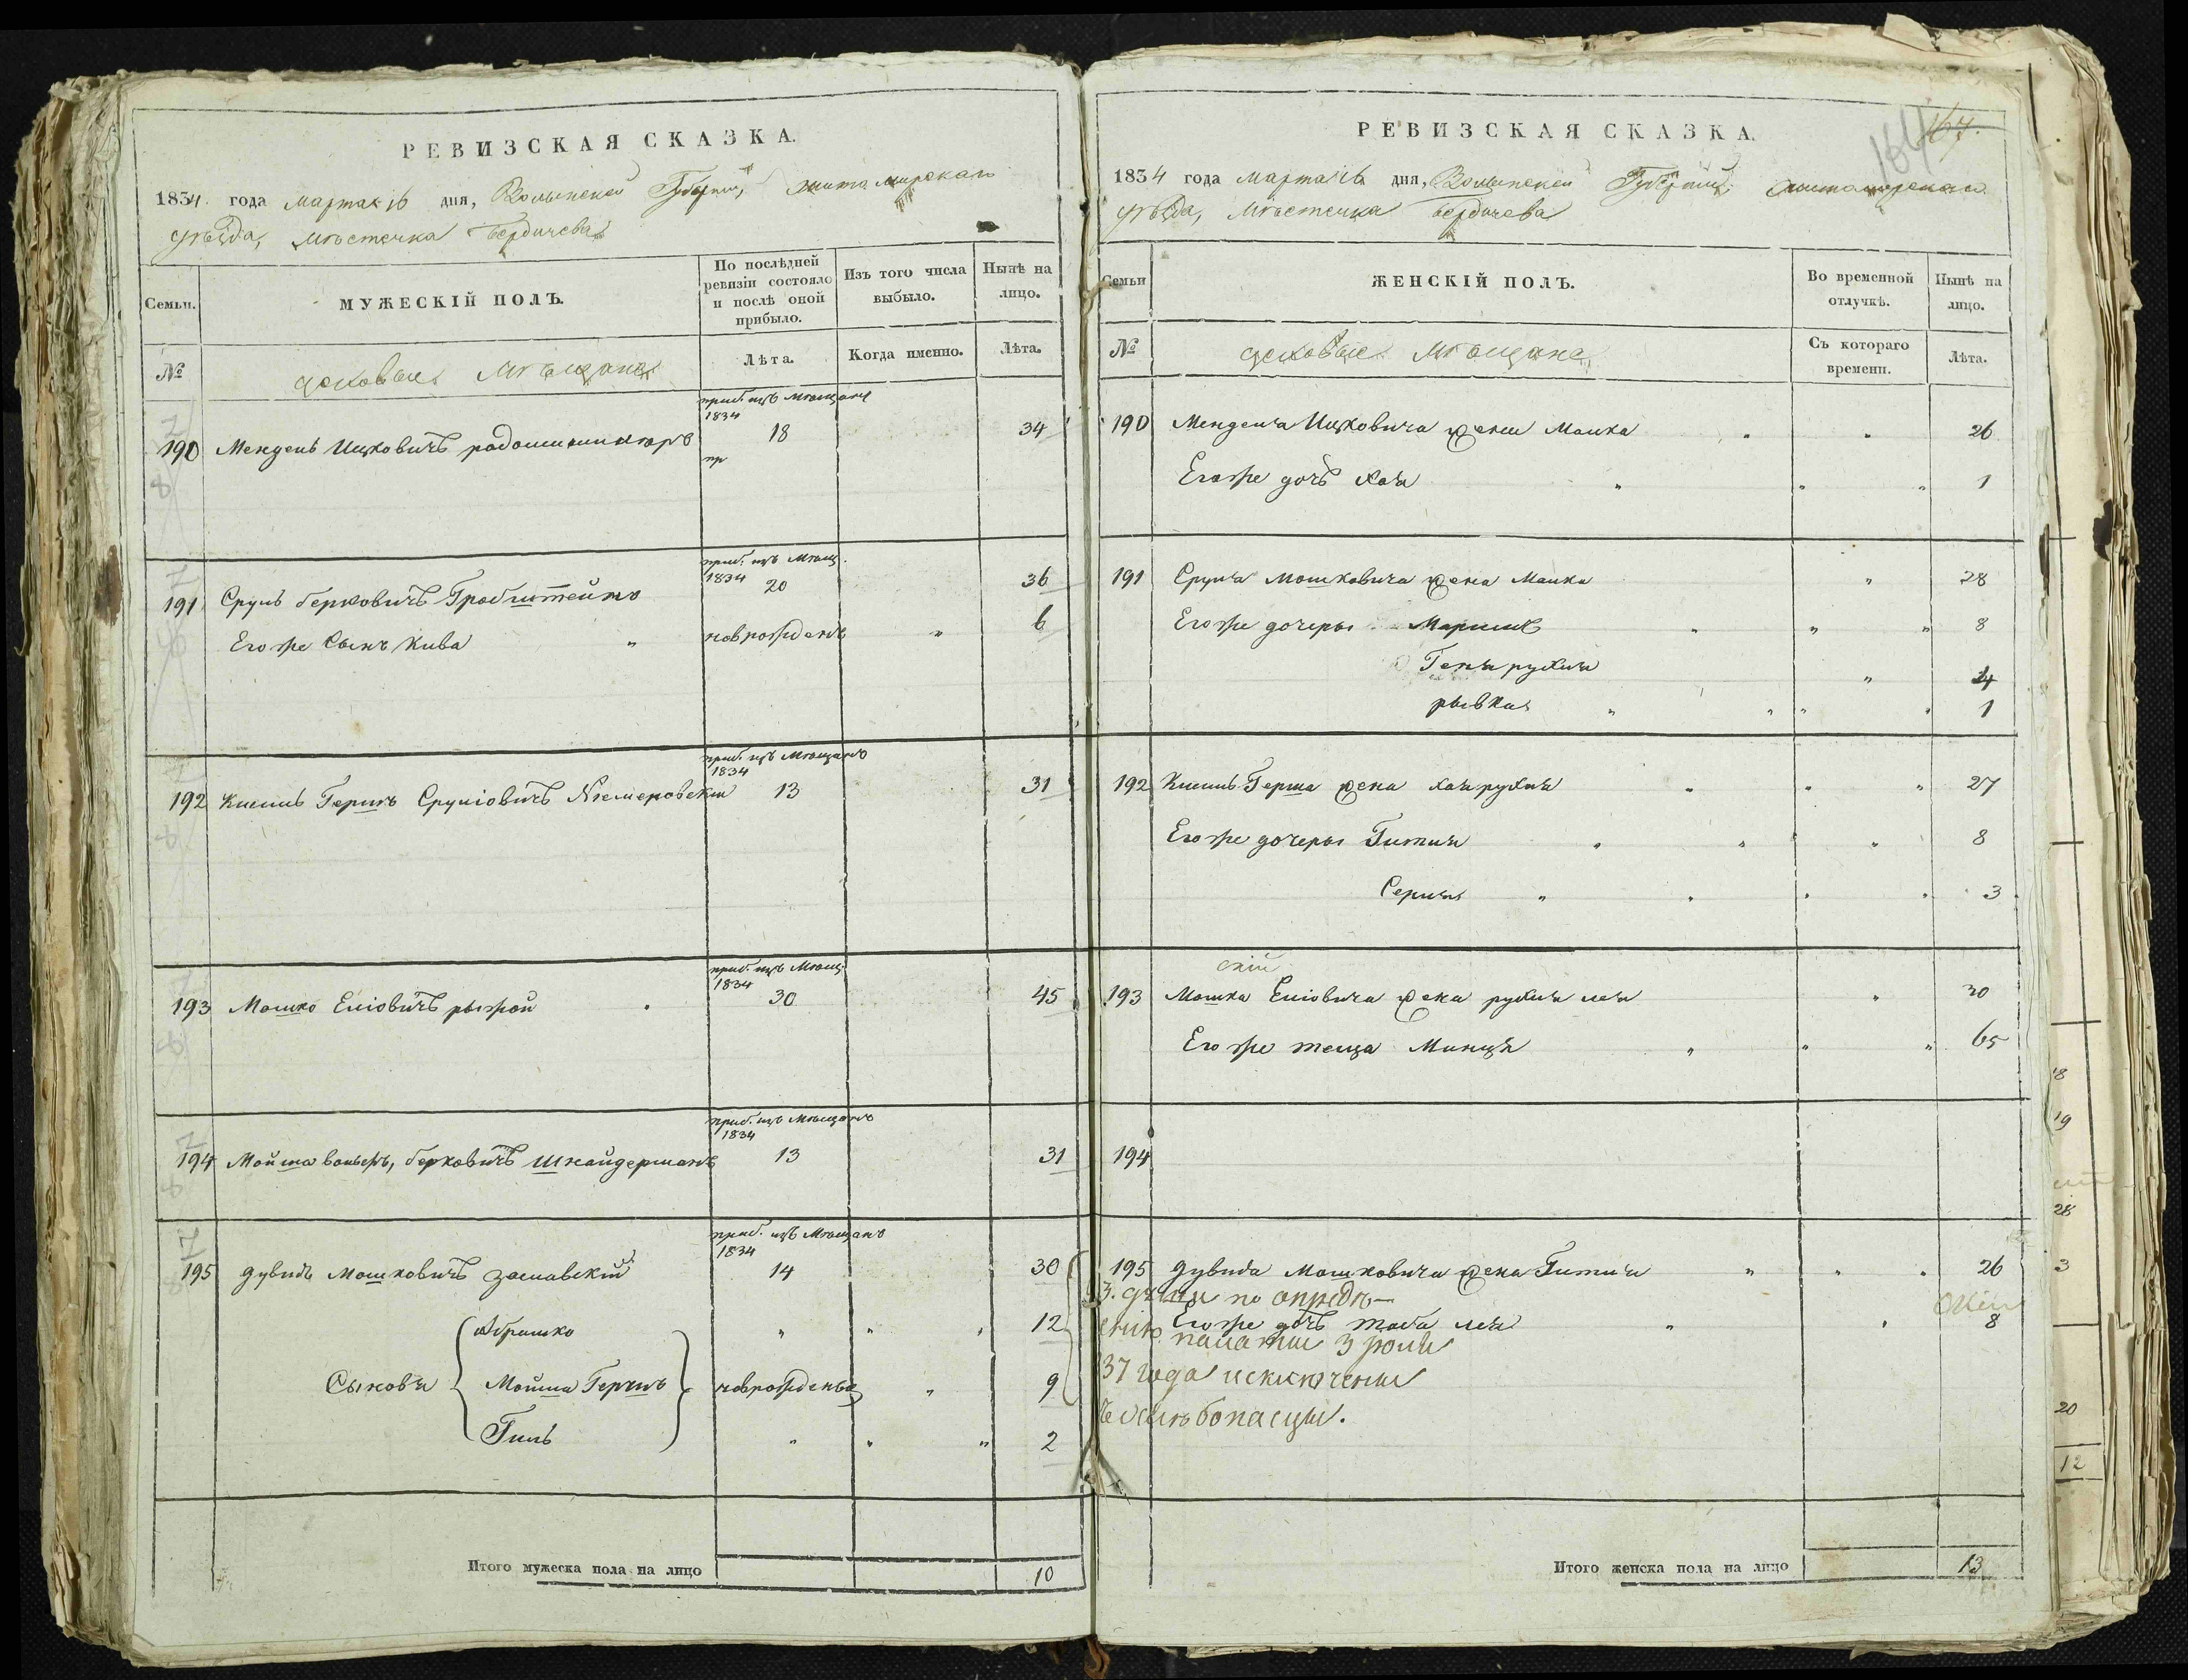 РЕВИЗСКАЯ СКАЗКА.
1834 года марта 16 дня, Волынской Губернии, житомирскаго
уѣзда, мѣстечка бердичева
Семьи.
МУЖЕСКІЙ ПОЛЪ.
По послѣдней ревизіи состояло и послѣ оной прибыло.
Изъ того числа выбыло.
Нынѣ на лицо.
№
цеховые мѣщане
Лѣта.
Когда именно.
Лѣта.
приб. изъ мѣщанъ
1834
190 Мендель Ицковичъ 18 34
пр
приб. изъ мѣщ.
1834
191 Сруль берковичъ Грабштейнъ 20 36
Его же Сынъ Кива " новрожденъ " 6
приб. изъ мѣщанъ
1834
192 Кисиль Гершъ Сруліовичъ Немеровскій 13 31
приб. изъ мѣщ.
1834
193 Мошко Еліовичъ рыжой 30 45
приб. изъ мѣщанъ
1834
194 Мойша вольфъ, берковичъ Шнайдерманъ 13 31
приб. изъ мѣщанъ
1834
195 дувидъ Мошковичъ заславскій 14 30
Абрашко " " 12
Сыновья Мойша Гершъ новрожденъ " 9
Гиль " " " 2
Итого мужеска пола на лицо 10
РЕВИЗСКАЯ СКАЗКА.
167.
164
1834 года марта 16 дня, Волынской Губерніи, житомирскаго
уѣзда, мѣстечка бердичева
Семьи
ЖЕНСКІЙ ПОЛЪ.
Во временной отлучкѣ.
Нынѣ на лицо.
№
цеховые мѣщане
Съ котораго времени.
Лѣта.
190 Менделя Ицковича жена Малка " " 26
Его же дочь Хая " " " 1
191 Сруля Мошковича жена Малка " 28
Его же дочеры Марим " " " 8
Геня рухля " 4
рывка " " " " 1
192 Кисиль Герша жена хая рухля " " " 27
Его же дочеры Гитля " " " 8
Серля " " " " 3
193 Мошка Еліовича жена рухля лея " 30
Его же теща Минця " " " 65
194
195 дувида Мошковича жена Гитля " " " 26
3. души по опредѣ-
Его же дочь таба лея " " 8
ленію палаты 3 іюля
37 года исключены
в хлѣбопасцы.
Итого женска пола на лицо 13
18
19
28
3
20
12